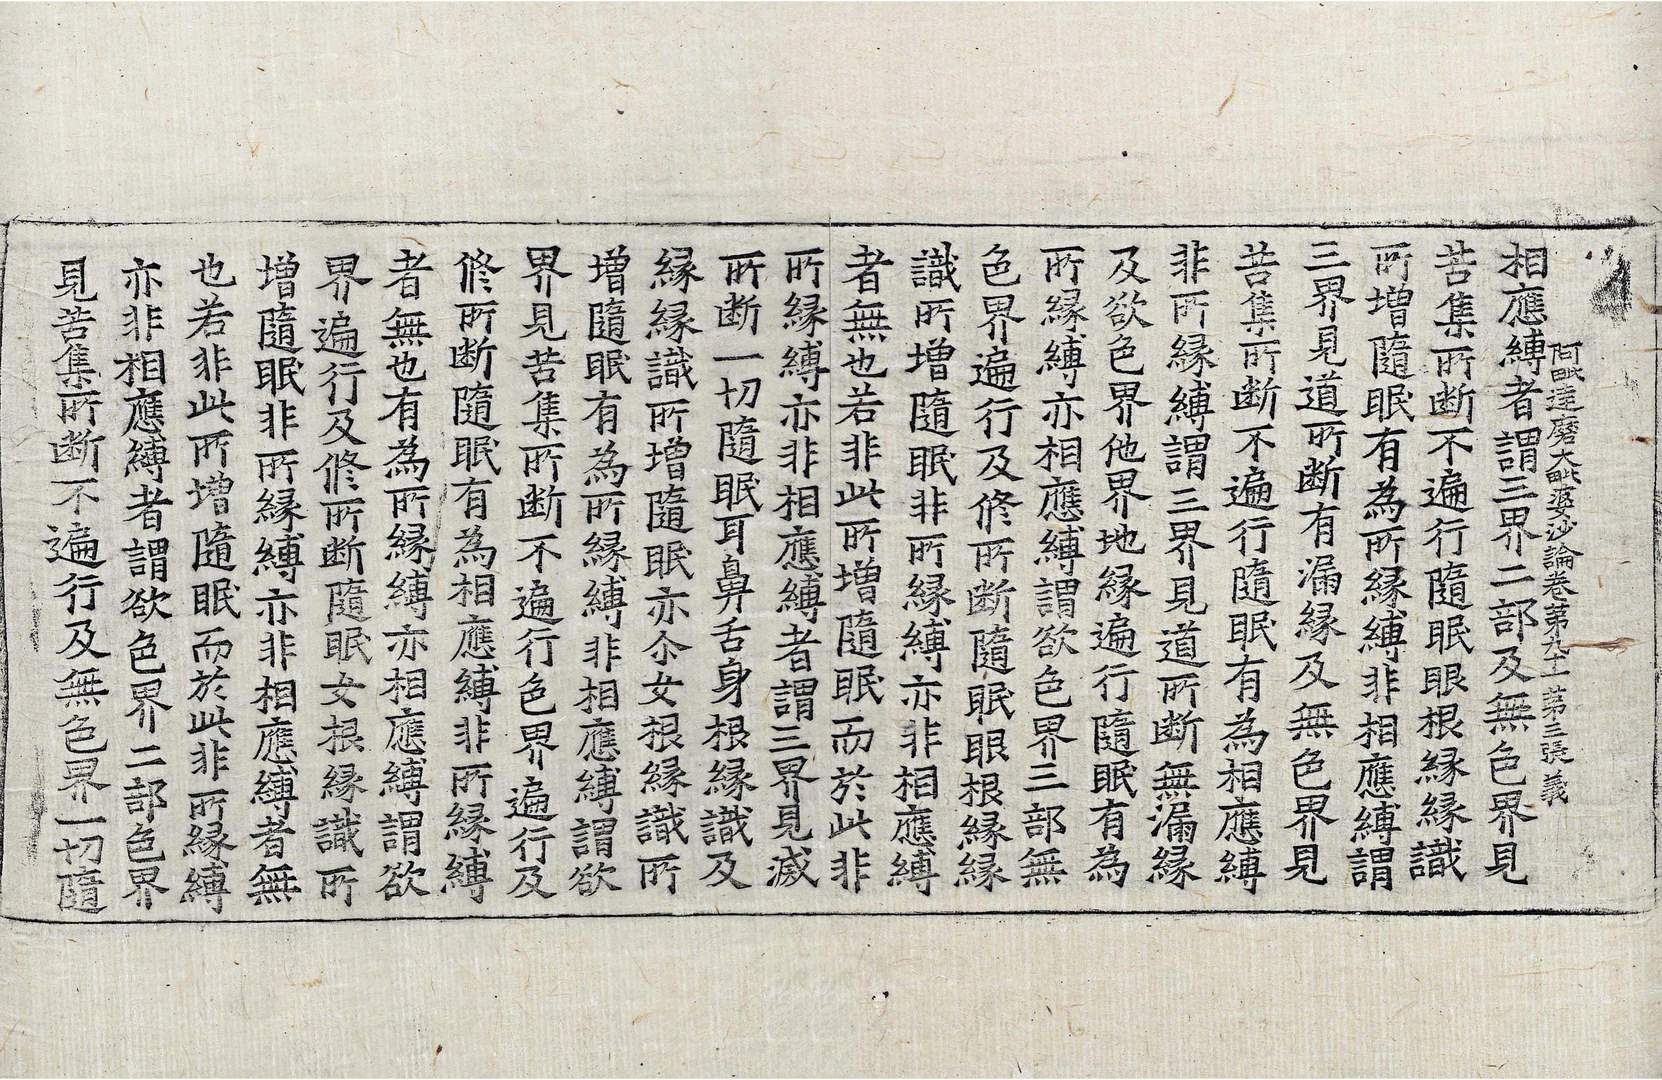 阿毗達磨大毗婆沙論卷第九十一 第三張 義
相應縛者謂三界二部及無色界見
苦集所断不遍行隨眠眼根緣緣識
所增隨眠有為所緣縛非相應縛謂
三界見道所断有漏緣及無色界見
苦集所断不遍行隨眠有為相應縛
非所緣縛謂三界見道所断無漏緣
及欲色界他界地緣遍行隨眠有為
所緣縛亦相應縛謂欲色界三部無
色界遍行及修所断隨眠眼根緣緣
識所增隨眠非所緣縛亦非相應縛
者無也若非此所增隨眠而於此非
所緣縛亦非相應縛者謂三界見滅
所断一切隨眠耳鼻舌身根緣識及
緣緣識所增隨眠亦尒女根緣識所
增隨眠有為所緣縛非相應縛謂欲
界見苦集所断不遍行色界遍行及
修所断隨眠有為相應縛非所緣縛
者無也有為所緣縛亦相應縛謂欲
界遍行及修所断隨眠女根緣識所
增隨眠非所緣縛亦非相應縛者無
也若非此所增隨眠而於此非所緣縛
亦非相應縛者謂欲色界二部色界
見苦集所断不遍行及無色界一切隨